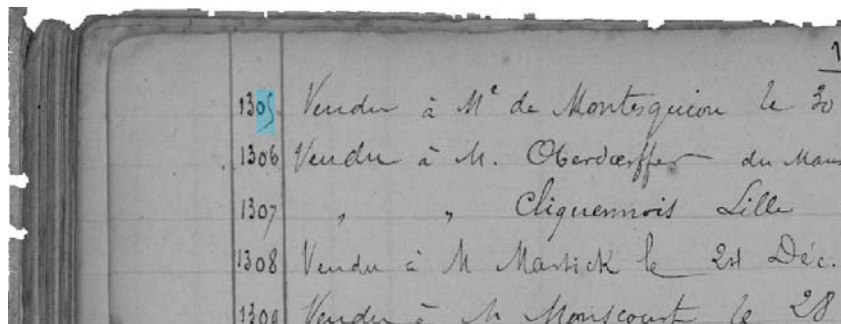 1305 Vendu à Mr de Montesquiou le 30
1306 Vendu à M. Oberdœrffer du Mans
1307 " " Cliquennois Lille
1308 Vendu à M Massick le 24 Déc.
1309 Vendu à M Monscourt le 28